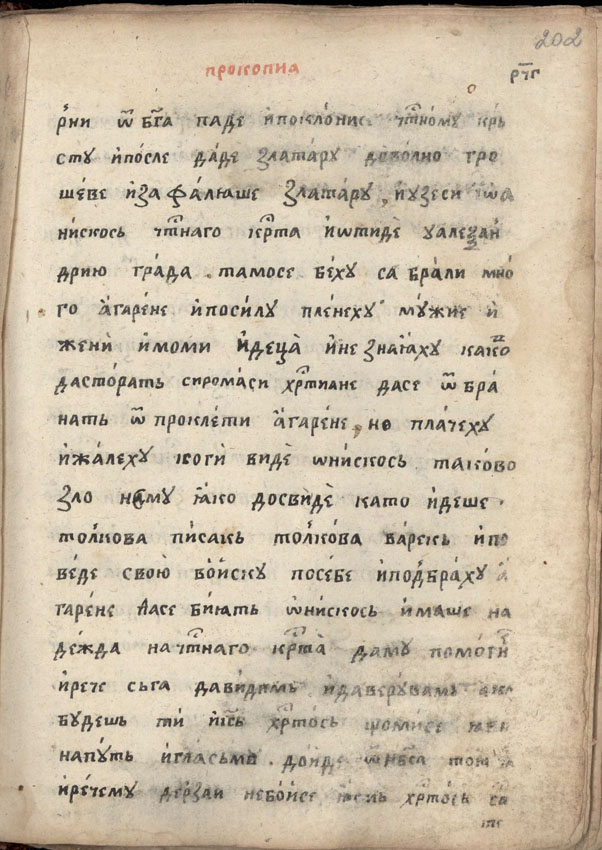 202
прокопиа
рч҃г
рни ѿ бг҃а паде ипоклонисе чⷭ҇тному крь
сту ипосле даде златару доволно гро
шѐве иза фалюаше златару, иузеси
нискось чⷭ҇тнаго крⷭ҇та иѡтидѐ уалеѯан
дрию града . тамосе бѐху са брали мно
го а҆гарѐне ипосилу плѐнеху мꙋжие и
жени и҆моми и҆деца̀ и҆не знаꙗху како
дасторать сиромаси хрⷭ҇тиане дасе ѿ бра
нать ѿ проклѐти а҆гарѐне, но плачеху
ижа̀леху коги видѐ ѡнискось таково
зло нему ꙗко досвидѐ като идеше
толкова писакь толкова варекь ипо
вѐде свою воиску посебе иподбраху а҆
гарене дасе биють ѡ҆нискось и҆маше на
дѐжда на чⷭ҇тнаго крⷭ҇та̀ даму помогн
ирече сьга давидимь идаверувамь ако
будешь ти іи҃сь хрⷭ҇тось
напу̀ть игласьму доиде ѿ нб҃са
иречему дерзаи небоисе хрⷭ҇тось